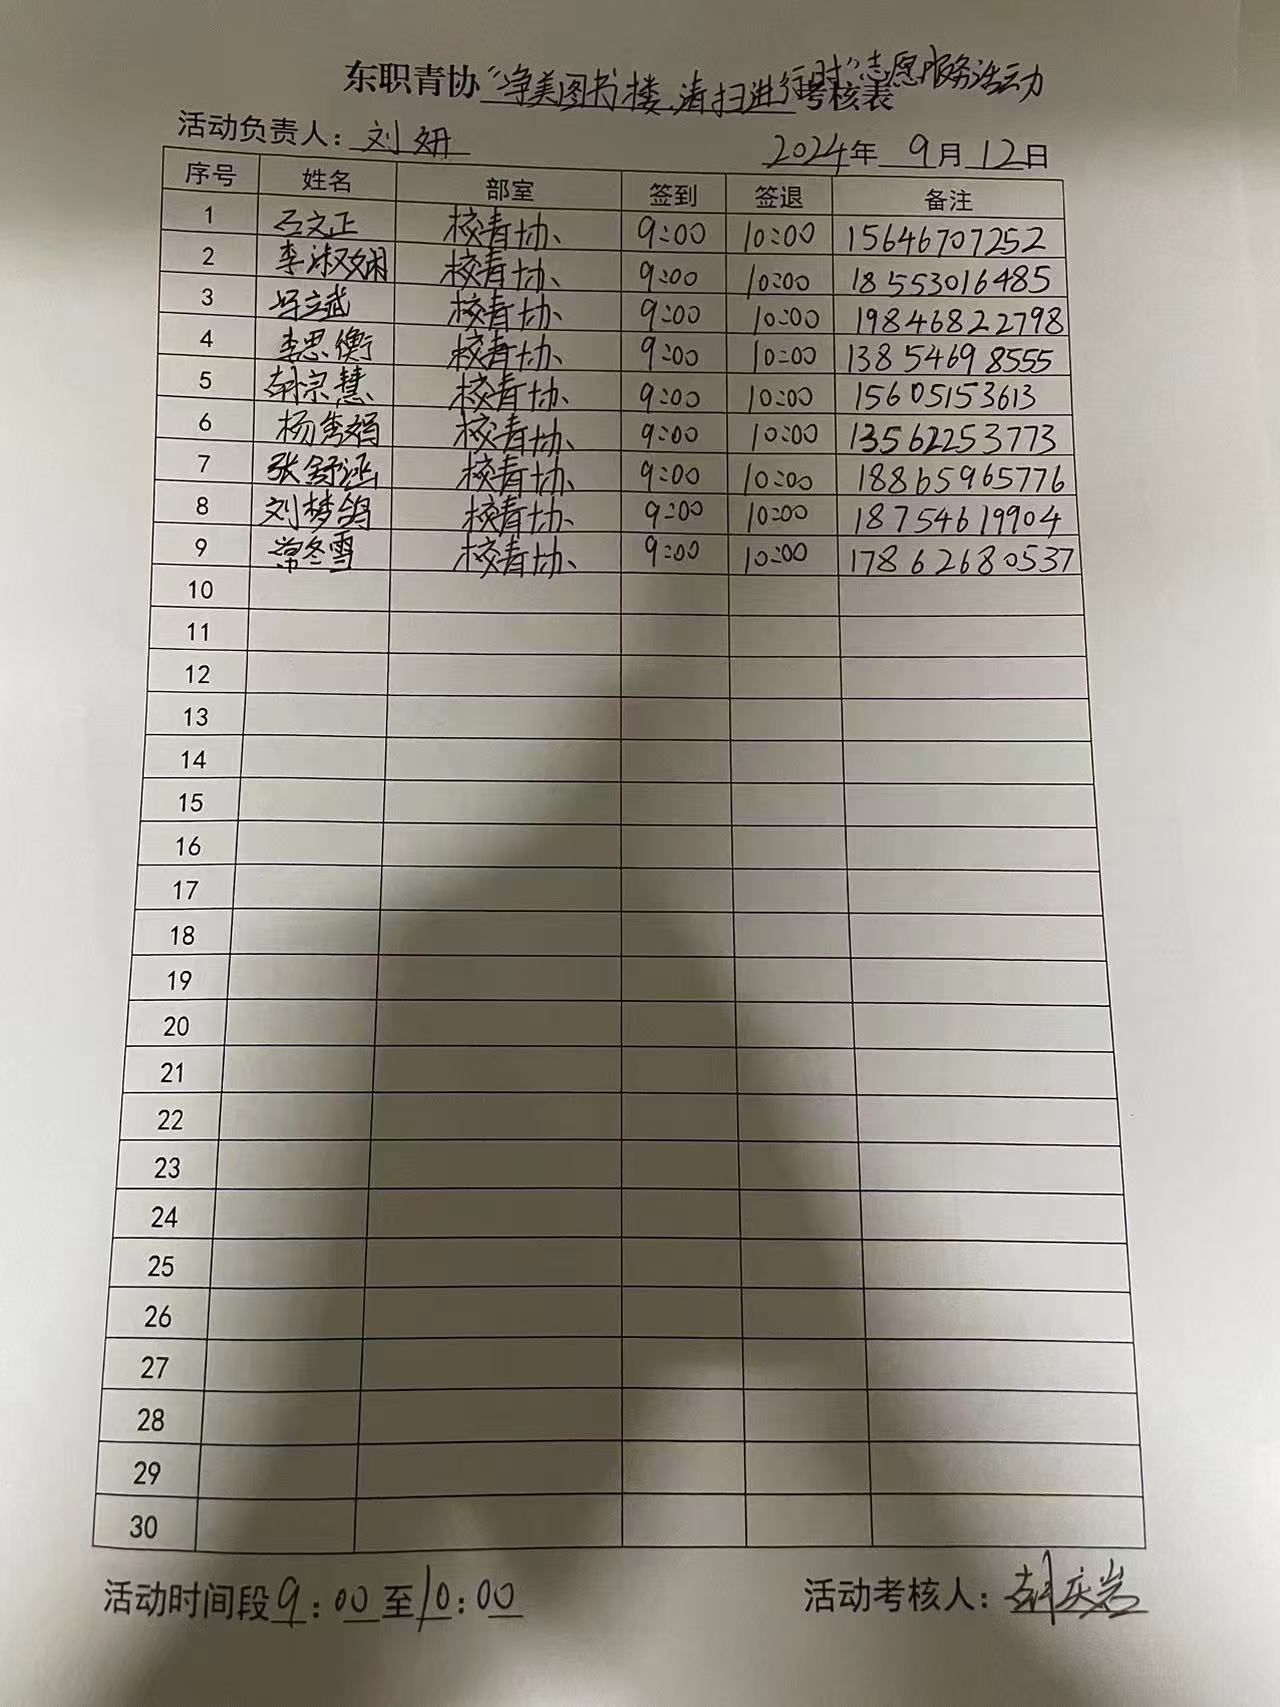 东职青协“净美图书楼,清扫进行时”志愿服务活动考核表
活动负责人：刘妍 2024年 9月 12日
序号 姓名 部室 签到 签退 备注
1 石文正 校青协 9:00 10:00 15646707252
2 李淑娴 校青协 9:00 10:00 18553016485
3 冯立斌 校青协 9:00 10:00 19846822798
4 李思衡 校青协 9:00 10:00 13854698555
5 胡宗慧 校青协 9:00 10:00 15605153613
6 杨隽娟 校青协 9:00 10:00 13562253773
7 张舒涵 校青协 9:00 10:00 18865965776
8 刘梦鸽 校青协 9:00 10:00 18754619904
9 常冬雪 校青协 9:00 10:00 17862680537
10
11
12
13
14
15
16
17
18
19
20
21
22
23
24
25
26
27
28
29
30
活动时间段9:00至10:00 活动考核人：庆岩